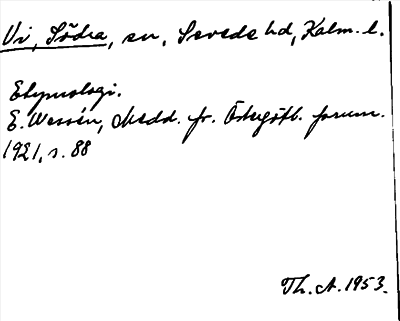 Vi, Södra, sn, Sevede hd, Kalm. l.
Etymologi.
E. Wessén, Medd. fr. Östergötl. fornm.
1921, s. 88
Th. A. 1953.